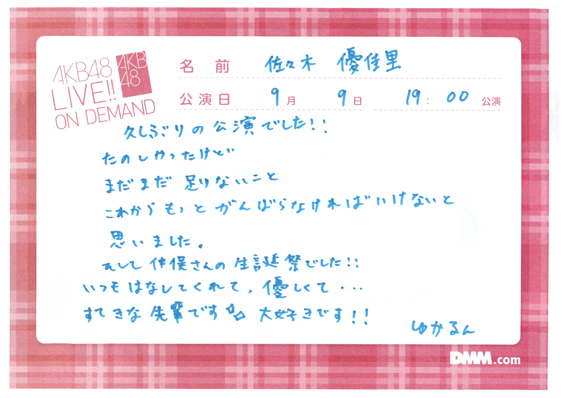 AKB48
LIVE!!
ON DEMAND
AKB
48
名前 佐々木 優佳里
公演日 9月 9日 19:00 公演
久しぶりの公演でした!!
たのしかったけど
まだまだ 足りないこと
これから もっと がんばらなければいけないと
思いました。
そして 仲俣さんの 生誕祭でした!!
いつも はなしてくれて, 優しくて・・・
すてきな 先輩です 大好きです!!
ゆかるん
DMM.com